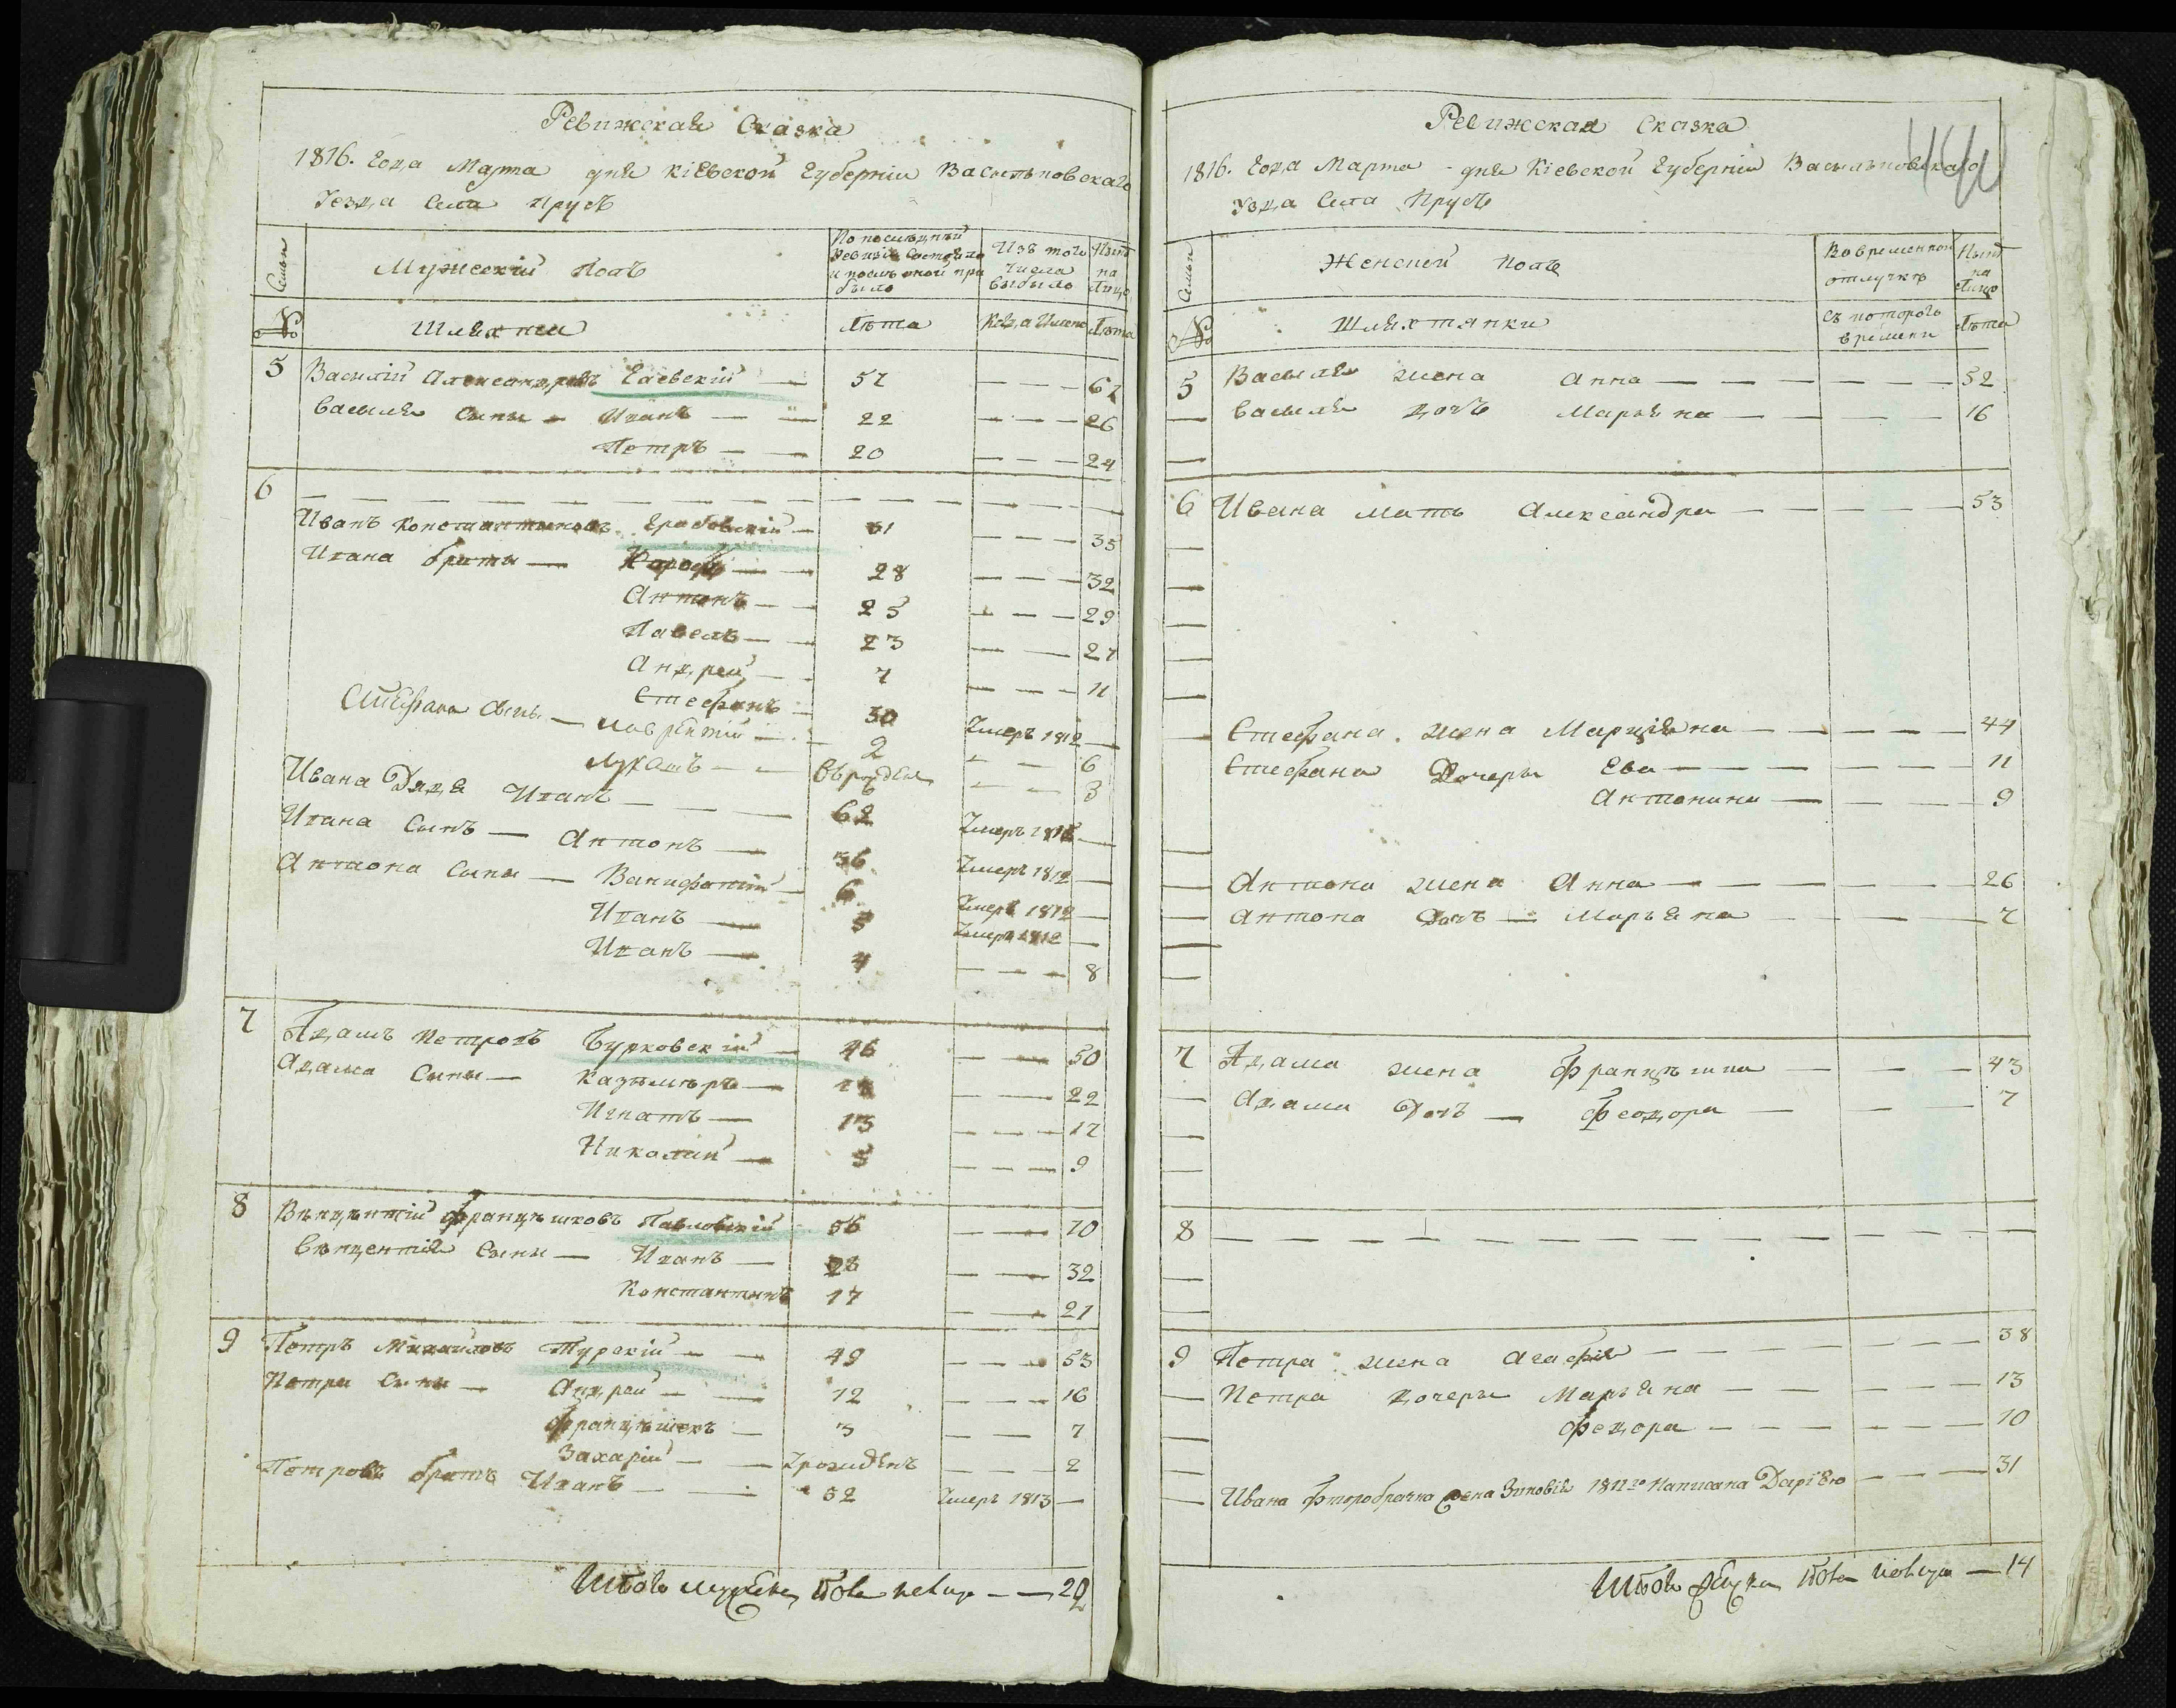 Ревижская Сказка
1816. Года Марта дня Кіевской Губерніи Васильковскаго
Уезда Села Прусъ
Семьи
Мужескій Полъ
По последней ревизіи состояло и после оной прибыло
Изъ того числа выбыло
Ныне на лицо
№
Шляхтичи
Лѣта
Когда Именно
Лѣта
5 Василій Александровъ Гаевскій — 57 — — — 61
Василія Сыны — Иванъ — — 22 — — — 26
Петръ — — 20 — — — 24
6 — — — — — — — — — — — —
Иванъ Константиновъ Грабовскій — 31 — — — 35
Ивана браты — — — 28 — — — 32
Антонъ — — 25 — — — 29
Павелъ — — 23 — — 27
Андрей — — 7 — — — 11
Стефанъ — 30 Умеръ 1812 —
Стефана Сынъ — Лаврентій — — 2 — — 6
Лукашъ — — — — 3
Ивана Дядя Иванъ — — — 62 Умеръ 1812 —
Ивана Сынъ — Антонъ — 36 Умеръ 1812 —
Антона Сыны — Ванифатій — 6 Умеръ 1812 —
Иванъ — 5 Умеръ 1812 —
Иванъ — 4 — — — 8
7 Адамъ Петровъ Бурковскій — 46 — — 50
Адама Сыны — Казымѣръ — 18 — — 22
Игнатъ — 13 — — — 17
Николай — 5 — — — 9
8 Вѣнцентій Францѣшковъ Павловскій 56 — — 70
Вѣнцентія Сыны — Иванъ — 28 — — 32
Константинъ 17 — — 21
9 Петръ Михайловъ Турскій — — 49 — — — 53
Петра Сыны — Андрей — — 12 — — — 16
Францѣшекъ — 3 — — 7
Захарій — — Урожденъ — — — 2
Петровъ братъ Иванъ — — 32 Умеръ 1813 —
Итого мужеска пола налицо — — 22
Ревижская Сказка
1816. Года Марта - дня Кіевской Губерніи Васильковскаго
Узда Села Прусъ
Семьи
Женскій Полъ
Во временной отлучкѣ
Ныне на лицо
№
Шляхтянки
Съ которого времени
Лѣта
5 Василія жена Анна — — — — — — 52
— Василія дочъ Марьяна — — — — 16
—
6 Ивана мать Александра — — — — — 53
— Стефана жена Марціяна — — — — — 44
Стефана Дочеры Ева — — — — — 11
Антонина — — — — 9
— Антона жена Анна — — — — — 26
— Антона Дочъ — Марьяна — — — 7
7 Адама жена Францѣшка — — — 43
— Адама Дочъ — Феодора — — — 7
8 — — — — — — — — — — — —
9 Петра жена Агафія — — — — — — 38
— Петра дочеры Марьяна — — — — — 13
— Федора — — — — — 10
— Ивана фторобрачна жена Зиновія 1811го Написана Даріею — — — 31
Итого женска пола налицо — 14